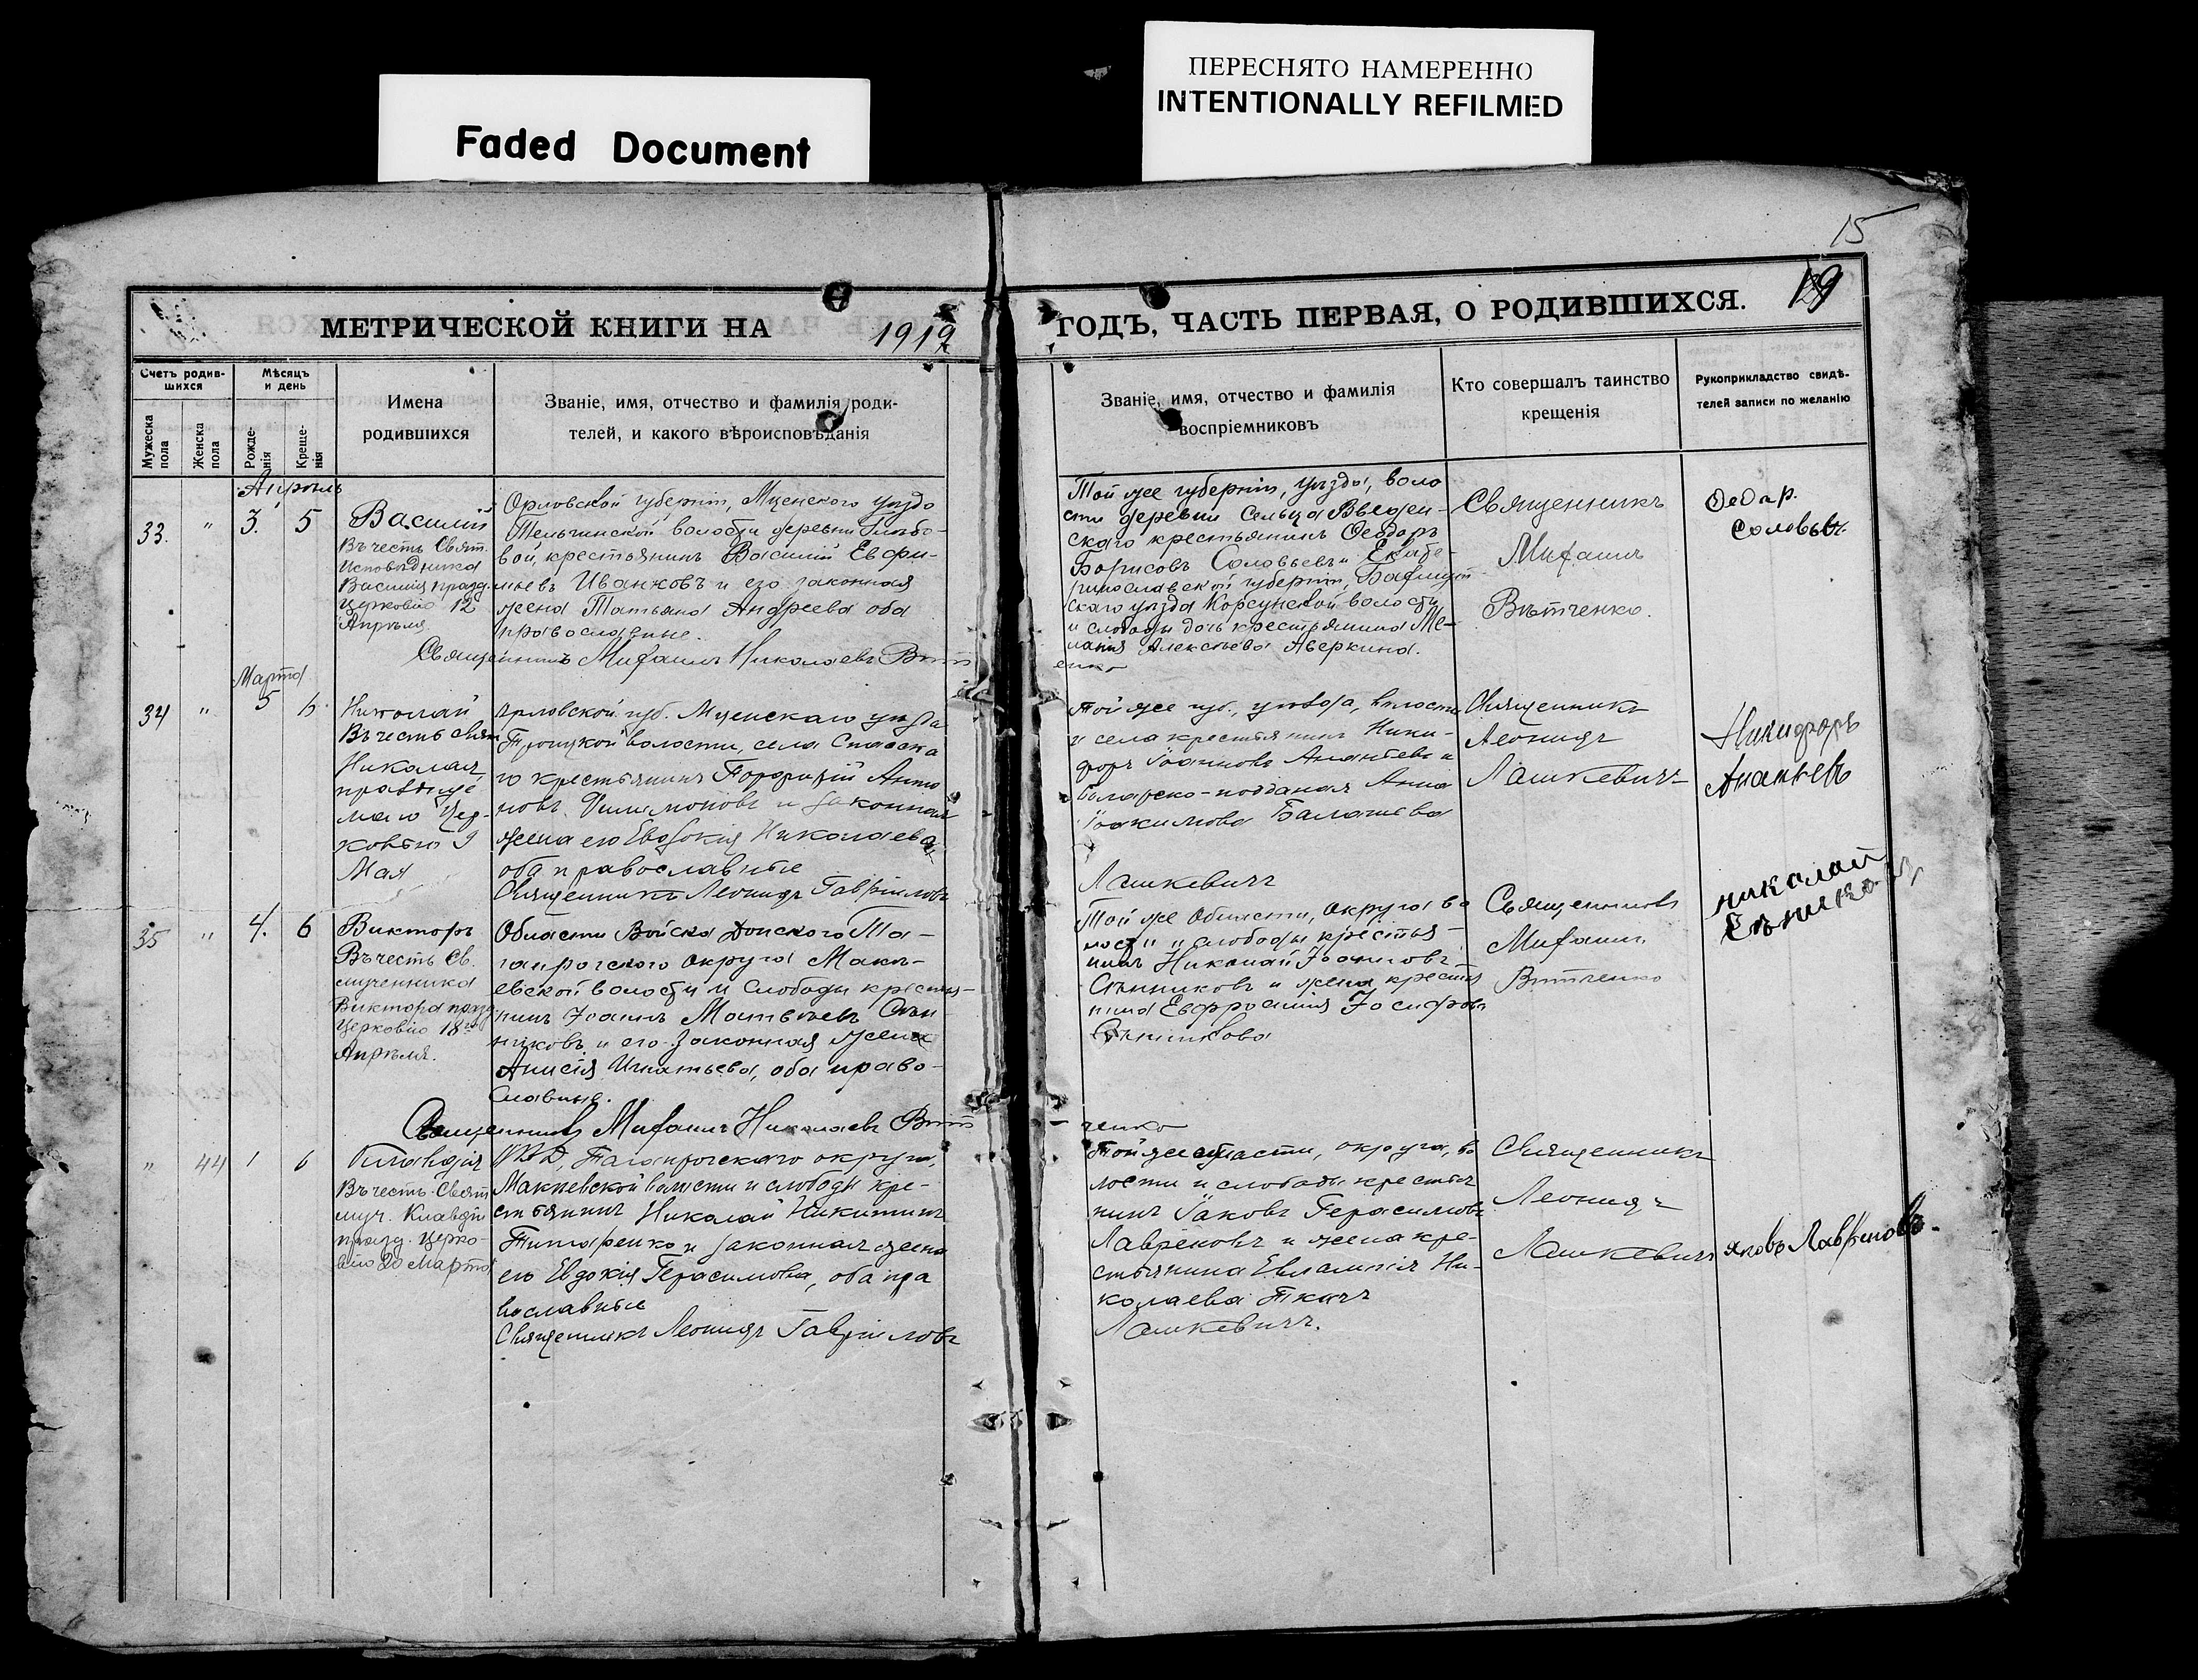 ПЕРЕСНЯТО НАМЕРЕННО
INTENTIONALLY REFILMED
Faded Document
15
19
МЕТРИЧЕСКОЙ КНИГИ НА 1919
ГОДЪ, ЧАСТЬ ПЕРВАЯ, О РОДИВШИХСЯ.
Счетъ родив-
шихся
Мѣсяцъ
и день
Мужеска
пола
Женска
пола
Рожде-
нія
Креще-
нія
Имена
родившихся
Званіе, имя, отчество и фамилія роди-
телей, и какого вѣроисповѣданія
Званіе, имя, отчество и фамилія
воспріемниковъ
Кто совершалъ таинство
крещенія
Рукоприкладство свидѣ-
телей записи по желанію
Апрѣль
33. " 3. 5
Василій
Въ честь Свят.
Исповѣдника
Василія празд.
Церковію 12
Апрѣля.
Орловской губерніи, Мценского уѣзда
Тельчинской волости деревни
вой, крестьянинъ Василій Евфи-
мьевъ Иванковъ и его законная
жена Татьяна Андреева оба
православные.
Священникъ Михаилъ Николаевъ Вѣтч
Той же губерніи, уѣзда, воло
сти деревни Сельца Введен-
скаго крестьянинъ Ѳеодоръ
Борисовъ Соловьевъ и Екате-
ринославской губерніи, Бахмут
скаго уѣзда Корсунской волости
и слободы дочь крестьянина Ме-
ланія Алексѣева Аверкина.
енко
Священникъ
Михаилъ
Вѣтченко.
Ѳедар.
Соловьв.
Марта
34 " 5 6
Николай
Въ честь Свят
Николая,
празднуе
маго Цер-
ковью 9
Мая
Орловской губ. Мценскаго уѣзда
Троицкой волости, села Спасска
го крестьянинъ Порфирій Анто
новъ Филимоновъ и законная
жена его Евдокія Николаева,
оба православные
Священникъ Леонидъ Гавріиловъ
Той же губ., уѣзда, волости
и села крестьянинъ Ники-
форъ Іоанновъ Ананьевъ и
болгарско-подданая Анна
Іоакимова Балашева
Лашкевичъ
Священникъ
Леонидъ
Лашкевичъ
Никифоръ
Ананьевъ
35 " 4. 6
Викторъ
Въ честь Св.
мученника
Виктора празд
Церковію 18го
Апрѣля.
Области Войска Донского Та-
ганрогского округа Макѣ-
евской волости и слободы крестья-
нинъ Іоаннъ Матвѣевъ Сѣн-
никовъ и его законная жена
Анисія Игнатьева, оба право-
славные.
Священникъ Михаилъ Николаевъ Вѣт
Той же Области, округа во
лости и слободы крестья-
нинъ Николай Іоанновъ
Сѣнниковъ и жена крестья
нина Евфросинія Іосифова
Сѣнникова
ченко
Священникъ
Михаилъ
Вѣтченко
николай
Сѣнико
" 44 1 6
Клавдія
Въ честь Свят
муч. Клавдіи
празд. Церко-
вію 20 Марта
ОВД, Таганрогскаго округа,
Макѣевской волости и слободы кре-
стьянинъ Николай Никитинъ
Титаренко и законная жена
его Евдокія Герасимова, оба пра
вославные
Священникъ Леонидъ Гавріиловъ
Той же области, округа, во
лости и слободы крестья
нинъ Іаковъ Герасимовъ
Лавреновъ и жена кре-
стьянина Евлампія Ни-
колаева Ткачъ
Лашкевичъ.
Священникъ
Леонидъ
Лашкевичъ
яковъ Лавреновъ.